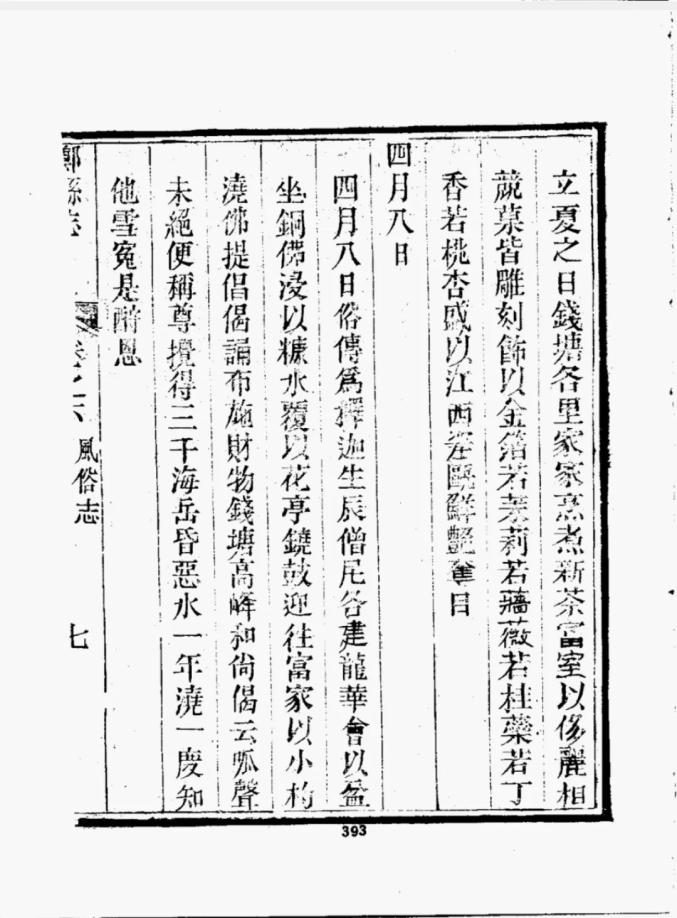 立夏之日錢塘各里家家烹煮新茶富室以侈麗相
競菓皆雕刻飾以金箔若茉莉若薔薇若桂蘂若丁
香若桃杏盛以江西窰甌鮮艷奪目
四月八日
四月八日俗傳爲釋迦生辰僧尼各建龍華會以盆
坐銅佛浸以糖水覆以花亭鐃鼓迎往富家以小杓
澆佛提倡偈誦布施財物錢塘高峰和尚偈云呱聲
未絕便稱尊攪得三千海岳昏惡水一年澆一度知
他雪寃是酧恩
縣志 卷之六 風俗志 七
393